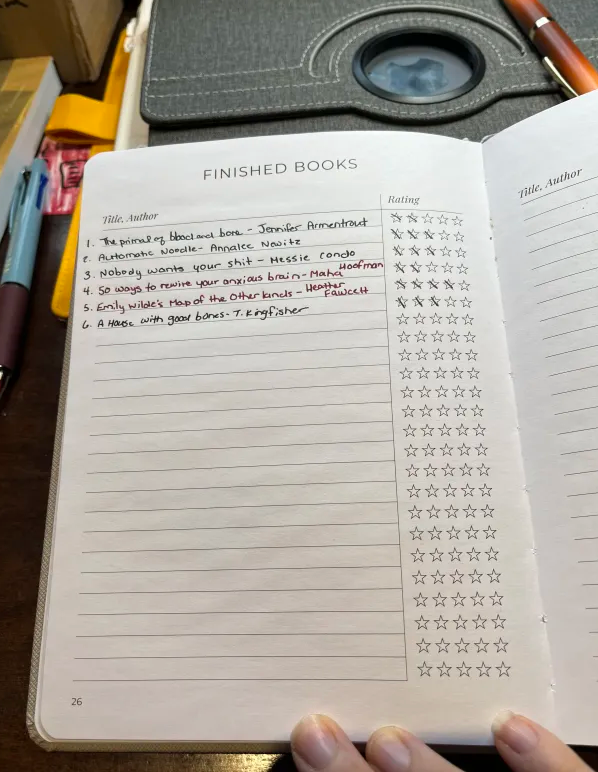 FINISHED BOOKS
Title, Author
Rating
Title, Author
1. The primal of blood and bone - Jennifer Armentrout
2. Automatic Noodle - Annalee Newitz
3. Nobody wants your shit - Messie condo
4. 50 ways to rewire your anxious brain - Maha Hoofman
5. Emily Wilde's Map of the Otherlands - Heather Fawcett
6. A House with good bones - T. Kingfisher
26